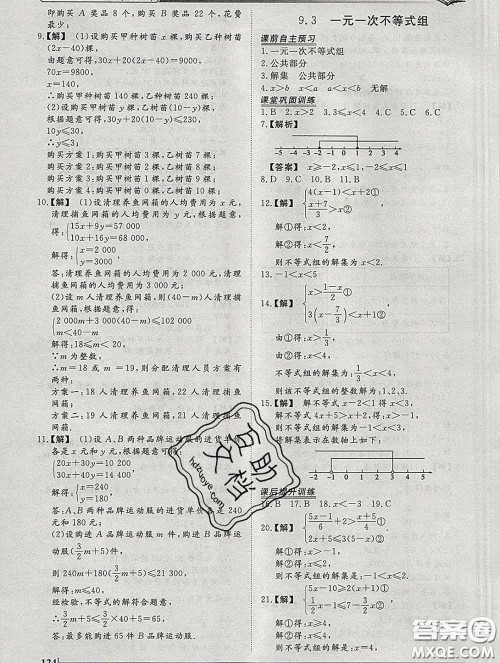 即购买 A 奖品 8 个,购买 B 奖品 22 个,花费
最少.
9.【解】(1)设购买甲种树苗 x 棵,购买乙种树苗
(2x-40)棵,
由题意可得,30x+20(2x-40)=9000,
70x=9800,
x=140,
∴购买甲种树苗 140 棵,乙种树苗 240 棵;
(2)设购买甲种树苗 y 棵,乙种树苗(10-y)棵,
根据题意可得,30y+20(10-y)≤230,
10y≤30,
∴y≤3;
购买方案 1:购买甲树苗 3 棵,乙树苗 7 棵;
购买方案 2:购买甲树苗 2 棵,乙树苗 8 棵;
购买方案 3:购买甲树苗 1 棵,乙树苗 9 棵;
购买方案 4:购买甲树苗 0 棵,乙树苗 10 棵;
10.【解】(1)设清理养鱼网箱的人均费用为 x 元,
清理捕鱼网箱的人均费用为 y 元,根据题意,
得:{15x+9y=57 000
10x+16y=68 000
解得:{x=2 000
y=3 000
答:清理养鱼网箱的人均费用为 2 000 元,清理
捕鱼网箱的人均费用为 3 000 元;
(2)设 m 人清理养鱼网箱,则(40-m)人清理捕
鱼网箱,根据题意,得:
{2 000m+3 000(40-m)≤102 000
m<40-m
解得:18≤m<20,
∵m 为整数,
∴m=18 或 m=19,则分配清理人员方案
有两种:
方案一:18 人清理养鱼网箱,22 人清理捕鱼
网箱;
方案二:19 人清理养鱼网箱,21 人清理捕鱼
网箱.
11.【解】(1)设 A、B 两种品牌运动服的进货单价
各是 x 元和 y 元,根据题意可得:
{20x+30y=10 200
30x+40y=14 400
解得:{x=240
y=180
答:A、B 两种品牌运动服的进货单价各是 240
元和 180 元;
(2)设购进 A 品牌运动服 m 件,购进 B 品牌运
动服(3/2m+5)件,
则 240m+180(3/2m+5)≤21 300,
解得:m≤40
经检验,不等式的解符合题意,
∴3/2m+5≤3/2×40+5=65,
答:最多能购进 65 件 B 品牌运动服.
124
9.3 一元一次不等式组
课前自主预习
1.一元一次不等式组
2.公共部分
3.解集 公共部分
4.x>b x<a a<x<b 无解
课堂巩固训练
1.B 2.x>2 3.3≤x<4 4.D 5.C 6.B
7.【解析】
-5 -4 -3 -2 -1 0 1 2 3 4 5
【答案】 x≥-2,x≤1,-2≤x≤1
8.D 9.C 10.B 11.B
12.【解】{4(x-1)<x+2①
(x+7)/3>x②
解①得:x<2,
解②得:x<7/2,
则不等式组的解集为:x<2.
13.-1<x<5
14.【解】{x>1-x/2①
3(x-7/3)<x+1②
由①得:x>1/3,
由②得:x≤4,
不等式组的解集为:1/3<x≤4.
则该不等式组的整数解为:1、2、3.
15.【解】
由②得:x≤3
∴不等式组的解集为:-1<x≤3,
-5 -4 -3 -2 -1 0 1 2 3 4 5
课后提升训练
16.B 17.B 18.x<-3 19.D
解①得:x<1,
解②得:x≥-1,
则不等式组的解集是:-1≤x<1.
21.【解】
解①得:x<4,
则不等式组的解集为:
百助文档
hdzuoye.com
答案圈
MXQE.COM